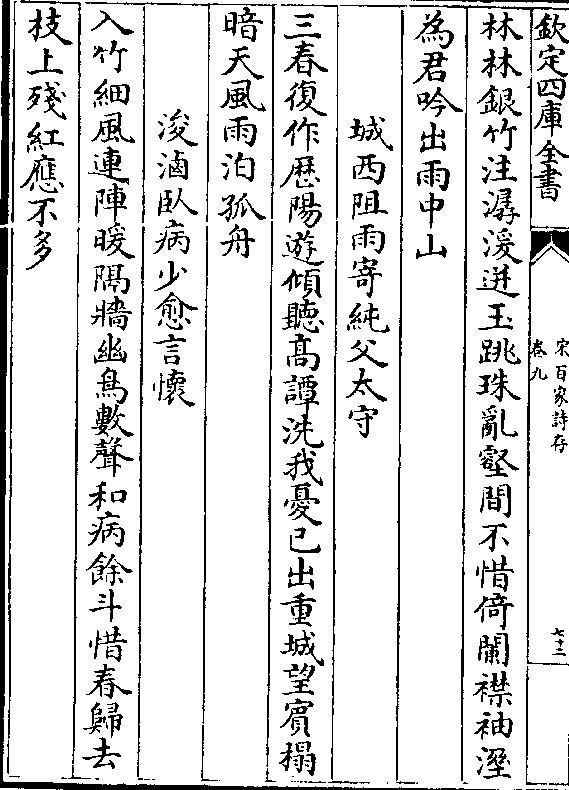 欽定四庫全書
宋百家詩存
卷九
七十二
林林銀竹注潺湲迸玉跳珠亂壑間不惜倚闌襟袖溼
為君吟出雨中山
城西阻雨寄純父太守
三春復作歴陽遊傾聽髙譚洗我憂已出重城望賓榻
暗天風雨泊孤舟
浚滷臥病少愈言懷
入竹細風連陣暖隔牆幽鳥數聲和病餘斗惜春歸去
枝上殘紅應不多